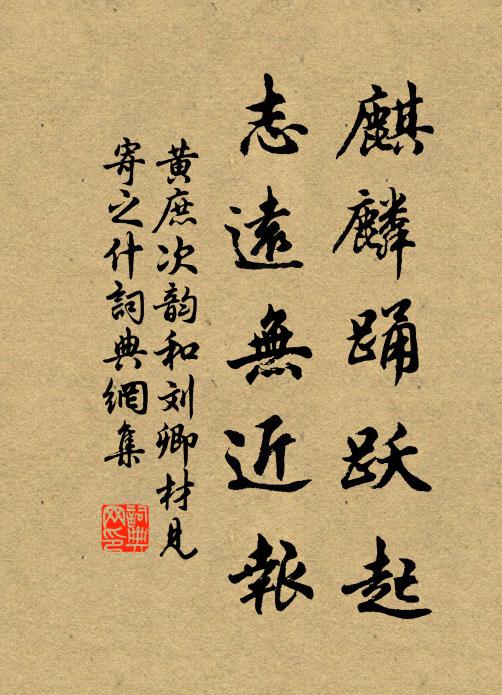 麒麟踊跃起
志遠無近報
黄庶次韵和刘卿材見
寄之什詞典網集
詞典
网印